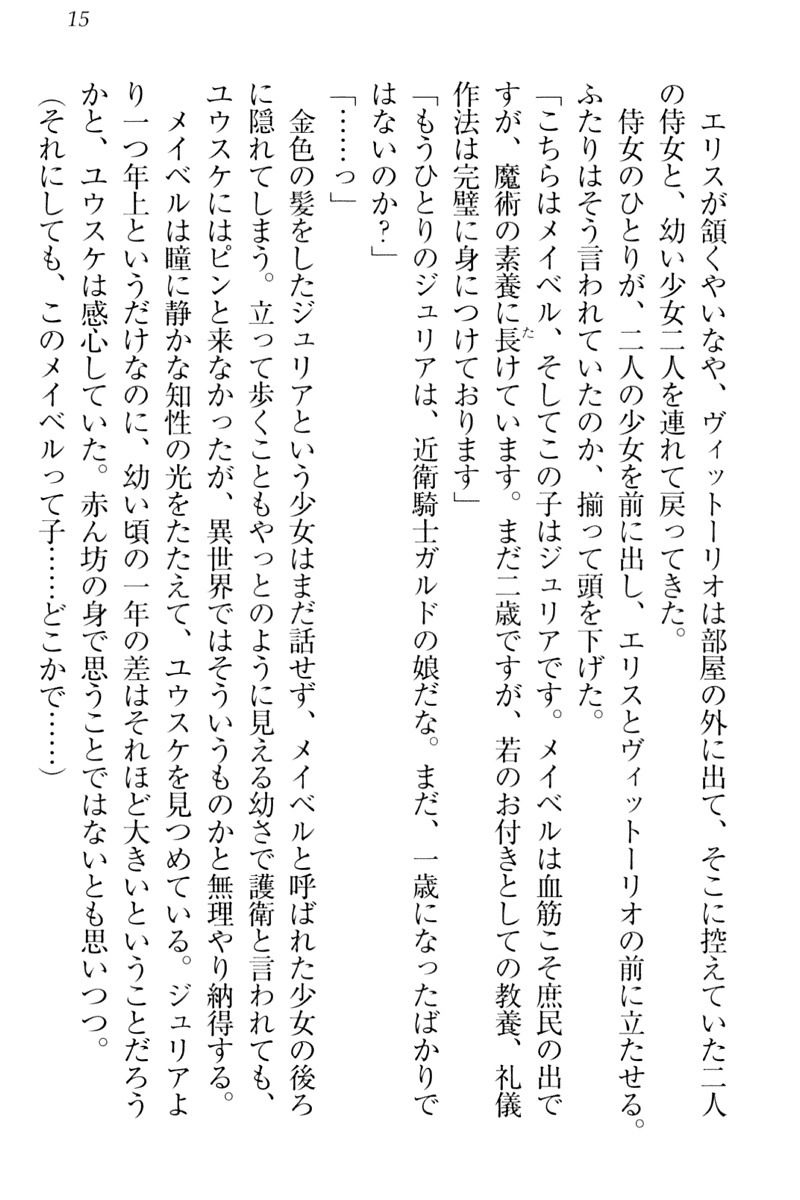 15
エリスが頷くやいなや、ヴィットーリオは部屋の外に出て、そこに控えていた二人
の侍女と、幼い少女二人を連れて戻ってきた。
侍女のひとりが、二人の少女を前に出し、エリスとヴィットーリオの前に立たせる。
ふたりはそう言われていたのか、揃って頭を下げた。
「こちらはメイベル、そしてこの子はジュリアです。メイベルは血筋こそ庶民の出で
すが、魔術の素養に長けています。まだ二歳ですが、若のお付きとしての教養、礼儀
た
作法は完璧に身につけております」
「もうひとりのジュリアは、近衛騎士ガルドの娘だな。まだ、一歳になったばかりで
はないのか?」
「……っ」
金色の髪をしたジュリアという少女はまだ話せず、メイベルと呼ばれた少女の後ろ
に隠れてしまう。立って歩くこともやっとのように見える幼さで護衛と言われても、
ユウスケにはピンと来なかったが、異世界ではそういうものかと無理やり納得する。
メイベルは瞳に静かな知性の光をたたえて、ユウスケを見つめている。ジュリアよ
り一つ年上というだけなのに、幼い頃の一年の差はそれほど大きいということだろう
かと、ユウスケは感心していた。赤ん坊の身で思うことではないとも思いつつ。
(それにしても、このメイベルって子……どこかで……)